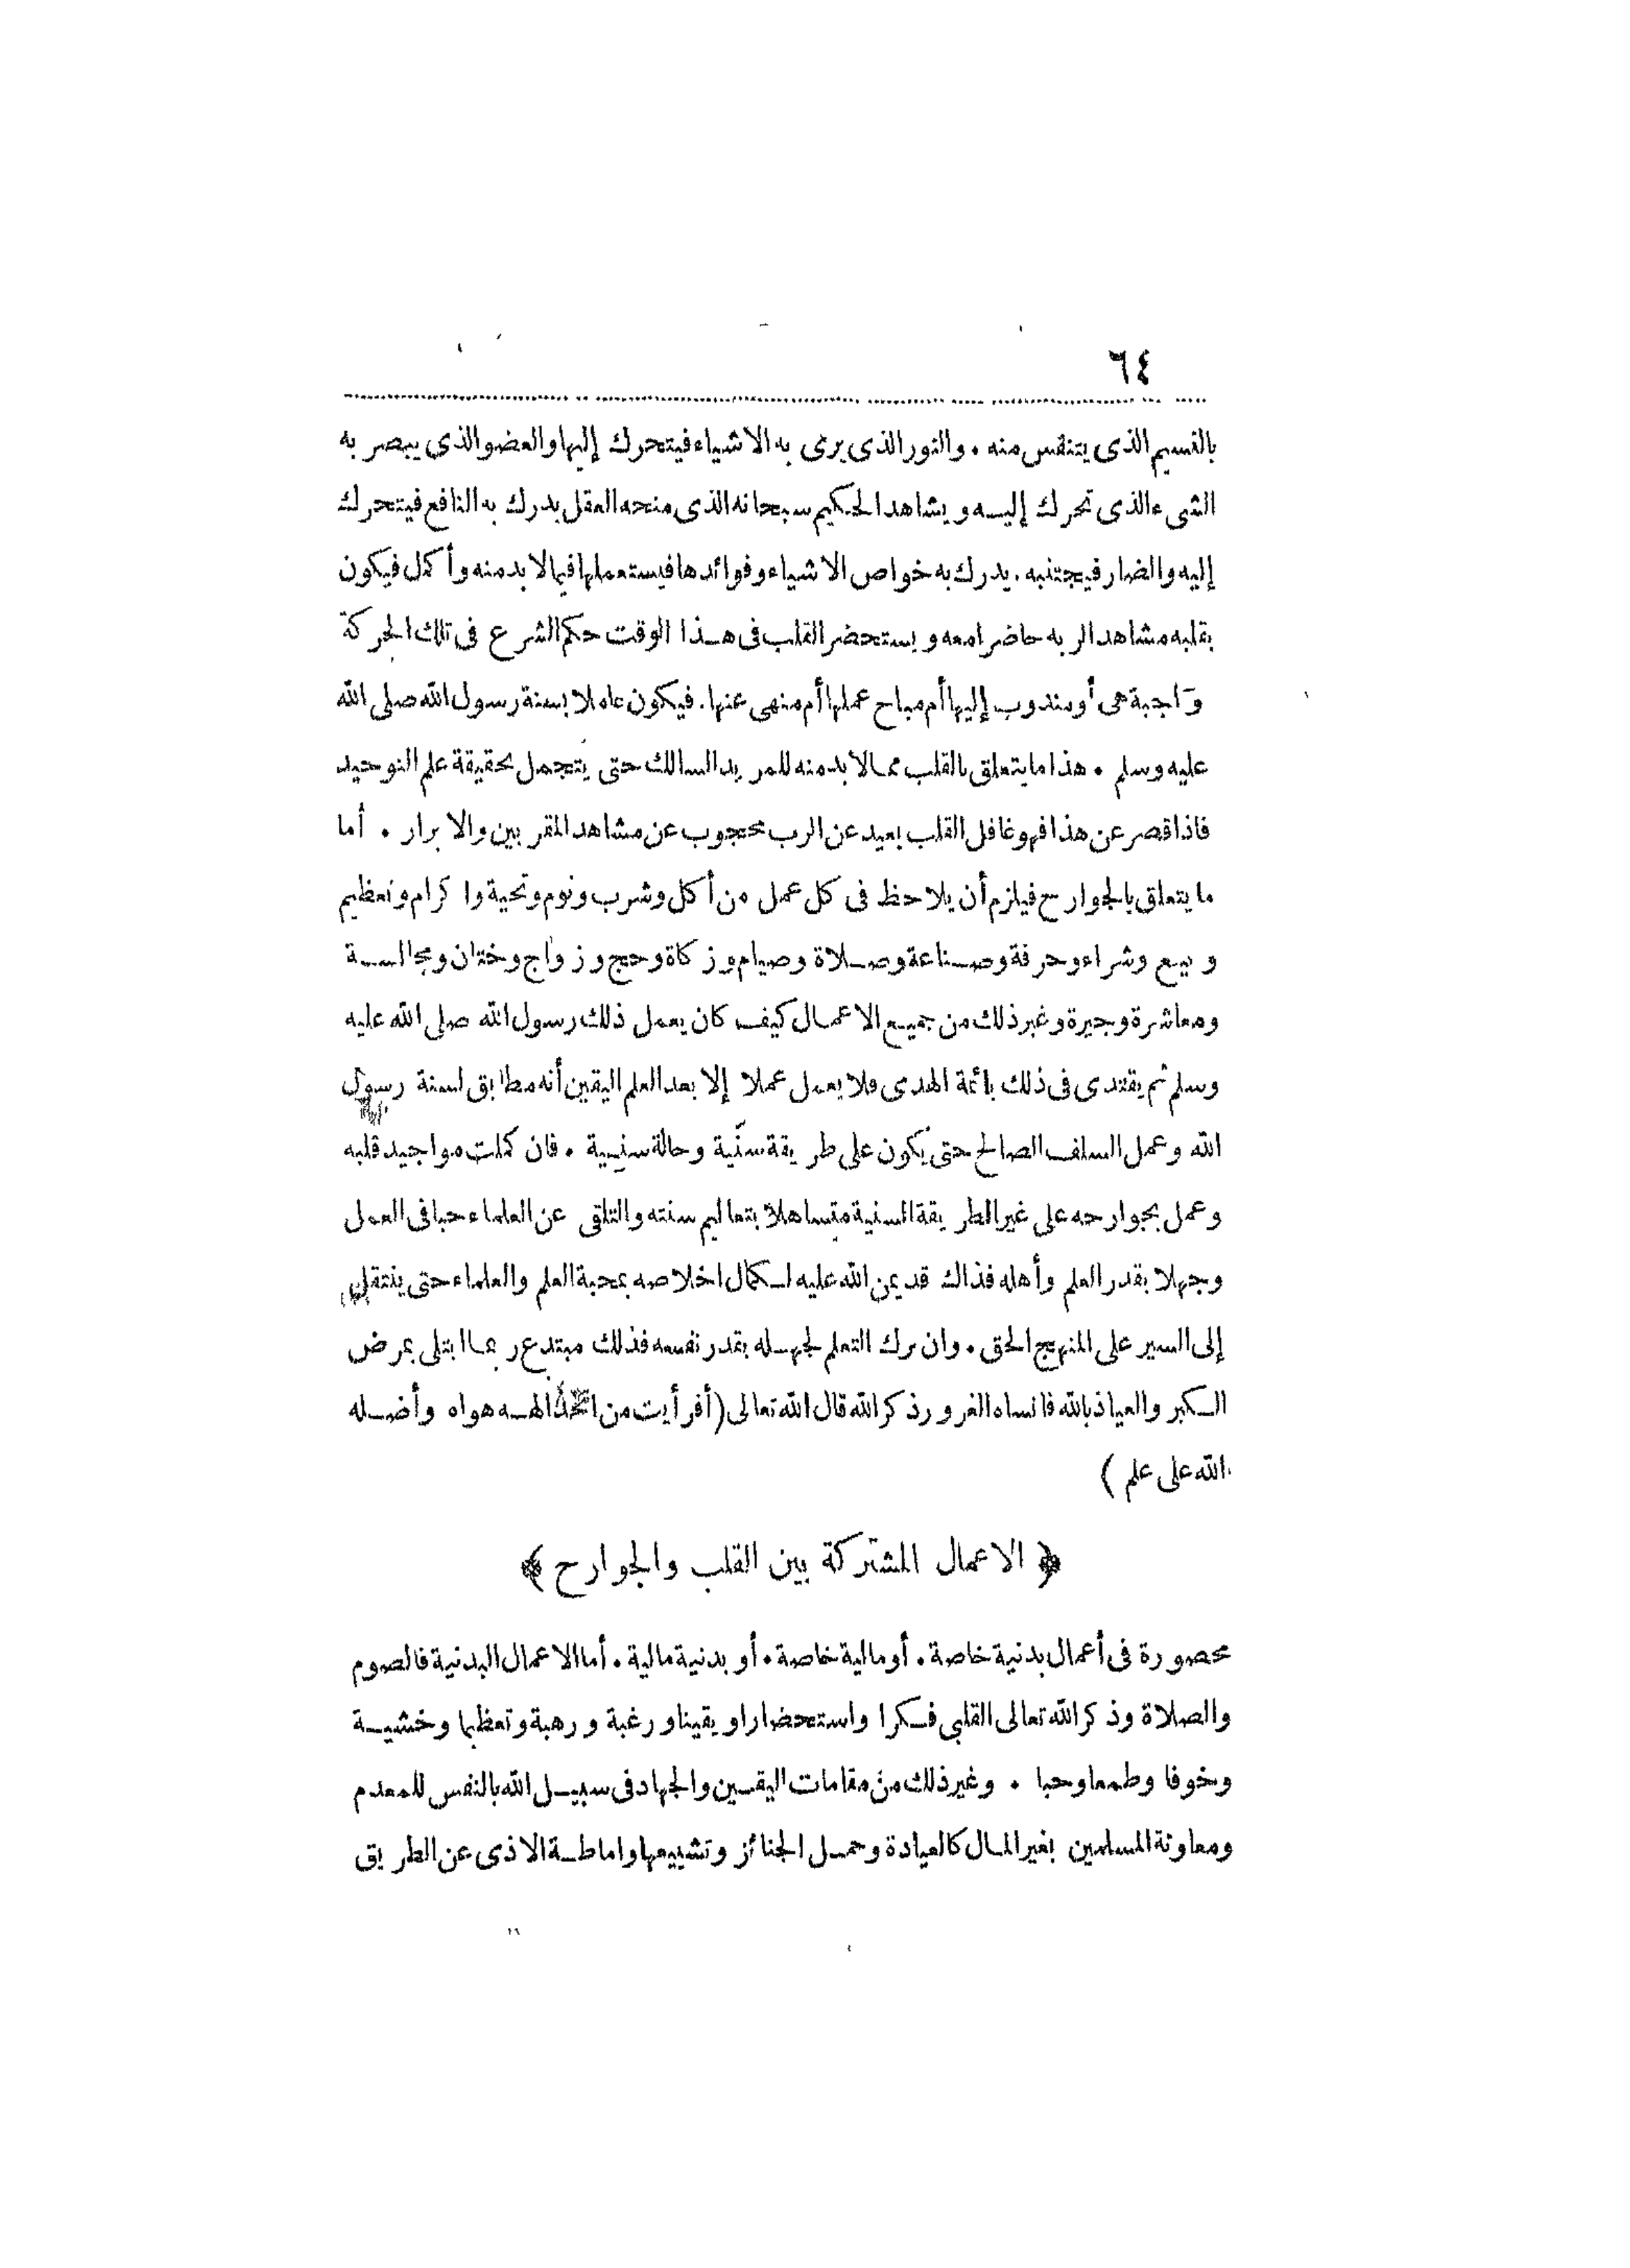 ٦٤
بالنسيم الذى يتنفس منه . والنور الذى يرى به الاشياء فيتحرك إليها والعضو الذى يبصر به
الشىء الذى تحرك إليه ويشاهد الحكيم سبحانه الذى منحه العقل يدرك به النافع فيتحرك
إليه والضار فيجتنبه . يدرك به خواص الاشياء وفوائدها فيستعملها فيما لا بد منه وأكمل فيكون
بقلبه مشاهدا لربه حاضرا معه ويستحضر القلب فى هذا الوقت حكم الشرع فى تلك الحركة
واجبة هى أو مندوب إليها أم مباح عملها أم منهى عنها . فيكون عاملا بسنة رسول الله صلى الله
عليه وسلم . هذا ما يتعلق بالقلب مما لا بد منه للمريد السالك حتى يتجمل بحقيقة علم التوحيد
فاذا قصر عن هذا فهو غافل القلب بعيد عن الرب محجوب عن مشاهد المقربين والابرار . أما
ما يتعلق بالجوارح فيلزم أن يلاحظ فى كل عمل من أكل وشرب ونوم وتحية واكرام وتعظيم
وبيع وشراء وحرفة وصناعة وصلاة وصيام وزكاة وحج وزواج وختان ومجالسة
ومعاشرة وجيرة وغير ذلك من جميع الاعمال كيف كان يعمل ذلك رسول الله صلى الله عليه
وسلم ثم يقتدى فى ذلك بائمة الهدى ولا يعمل عملا إلا بعد العلم اليقين أنه مطابق لسنة رسول
الله وعمل السلف الصالح حتى يكون على طريقة سنّية وحالة سنية . فان كملت مواجيد قلبه
وعمل بجوارحه على غير الطريقة السنية متساهلا بتعاليم سنته والتلقى عن العلماء حبا فى العمل
وجهلا بقدر العلم وأهله فذاك قد يمن الله عليه لكمال اخلاصه بمحبة العلم والعلماء حتى ينتقل
إلى السير على المنهج الحق . وان ترك التعلم لجهله بقدر نفسه فذلك مبتدع ربما ابتلى بمرض
الكبر والعياذ بالله فانساه الغرور ذكر الله قال الله تعالى (أفرأيت من اتخذ الهه هواه وأضله
الله على علم )
﴿ الاعمال المشتركة بين القلب والجوارح ﴾
محصورة فى أعمال بدنية خاصة . أو مالية خاصة . أو بدنية مالية . أما الاعمال البدنية فالصوم
والصلاة وذكر الله تعالى القلبى فكرا واستحضارا ويقينا ورغبة ورهبة وتعظيما وخشية
وخوفا وطمعا وحبا . وغير ذلك من مقامات اليقين والجهاد فى سبيل الله بالنفس للمعدم
ومعاونة المسلمين بغير المال كالعيادة وحمل الجنائز وتشييعها واماطة الاذى عن الطريق